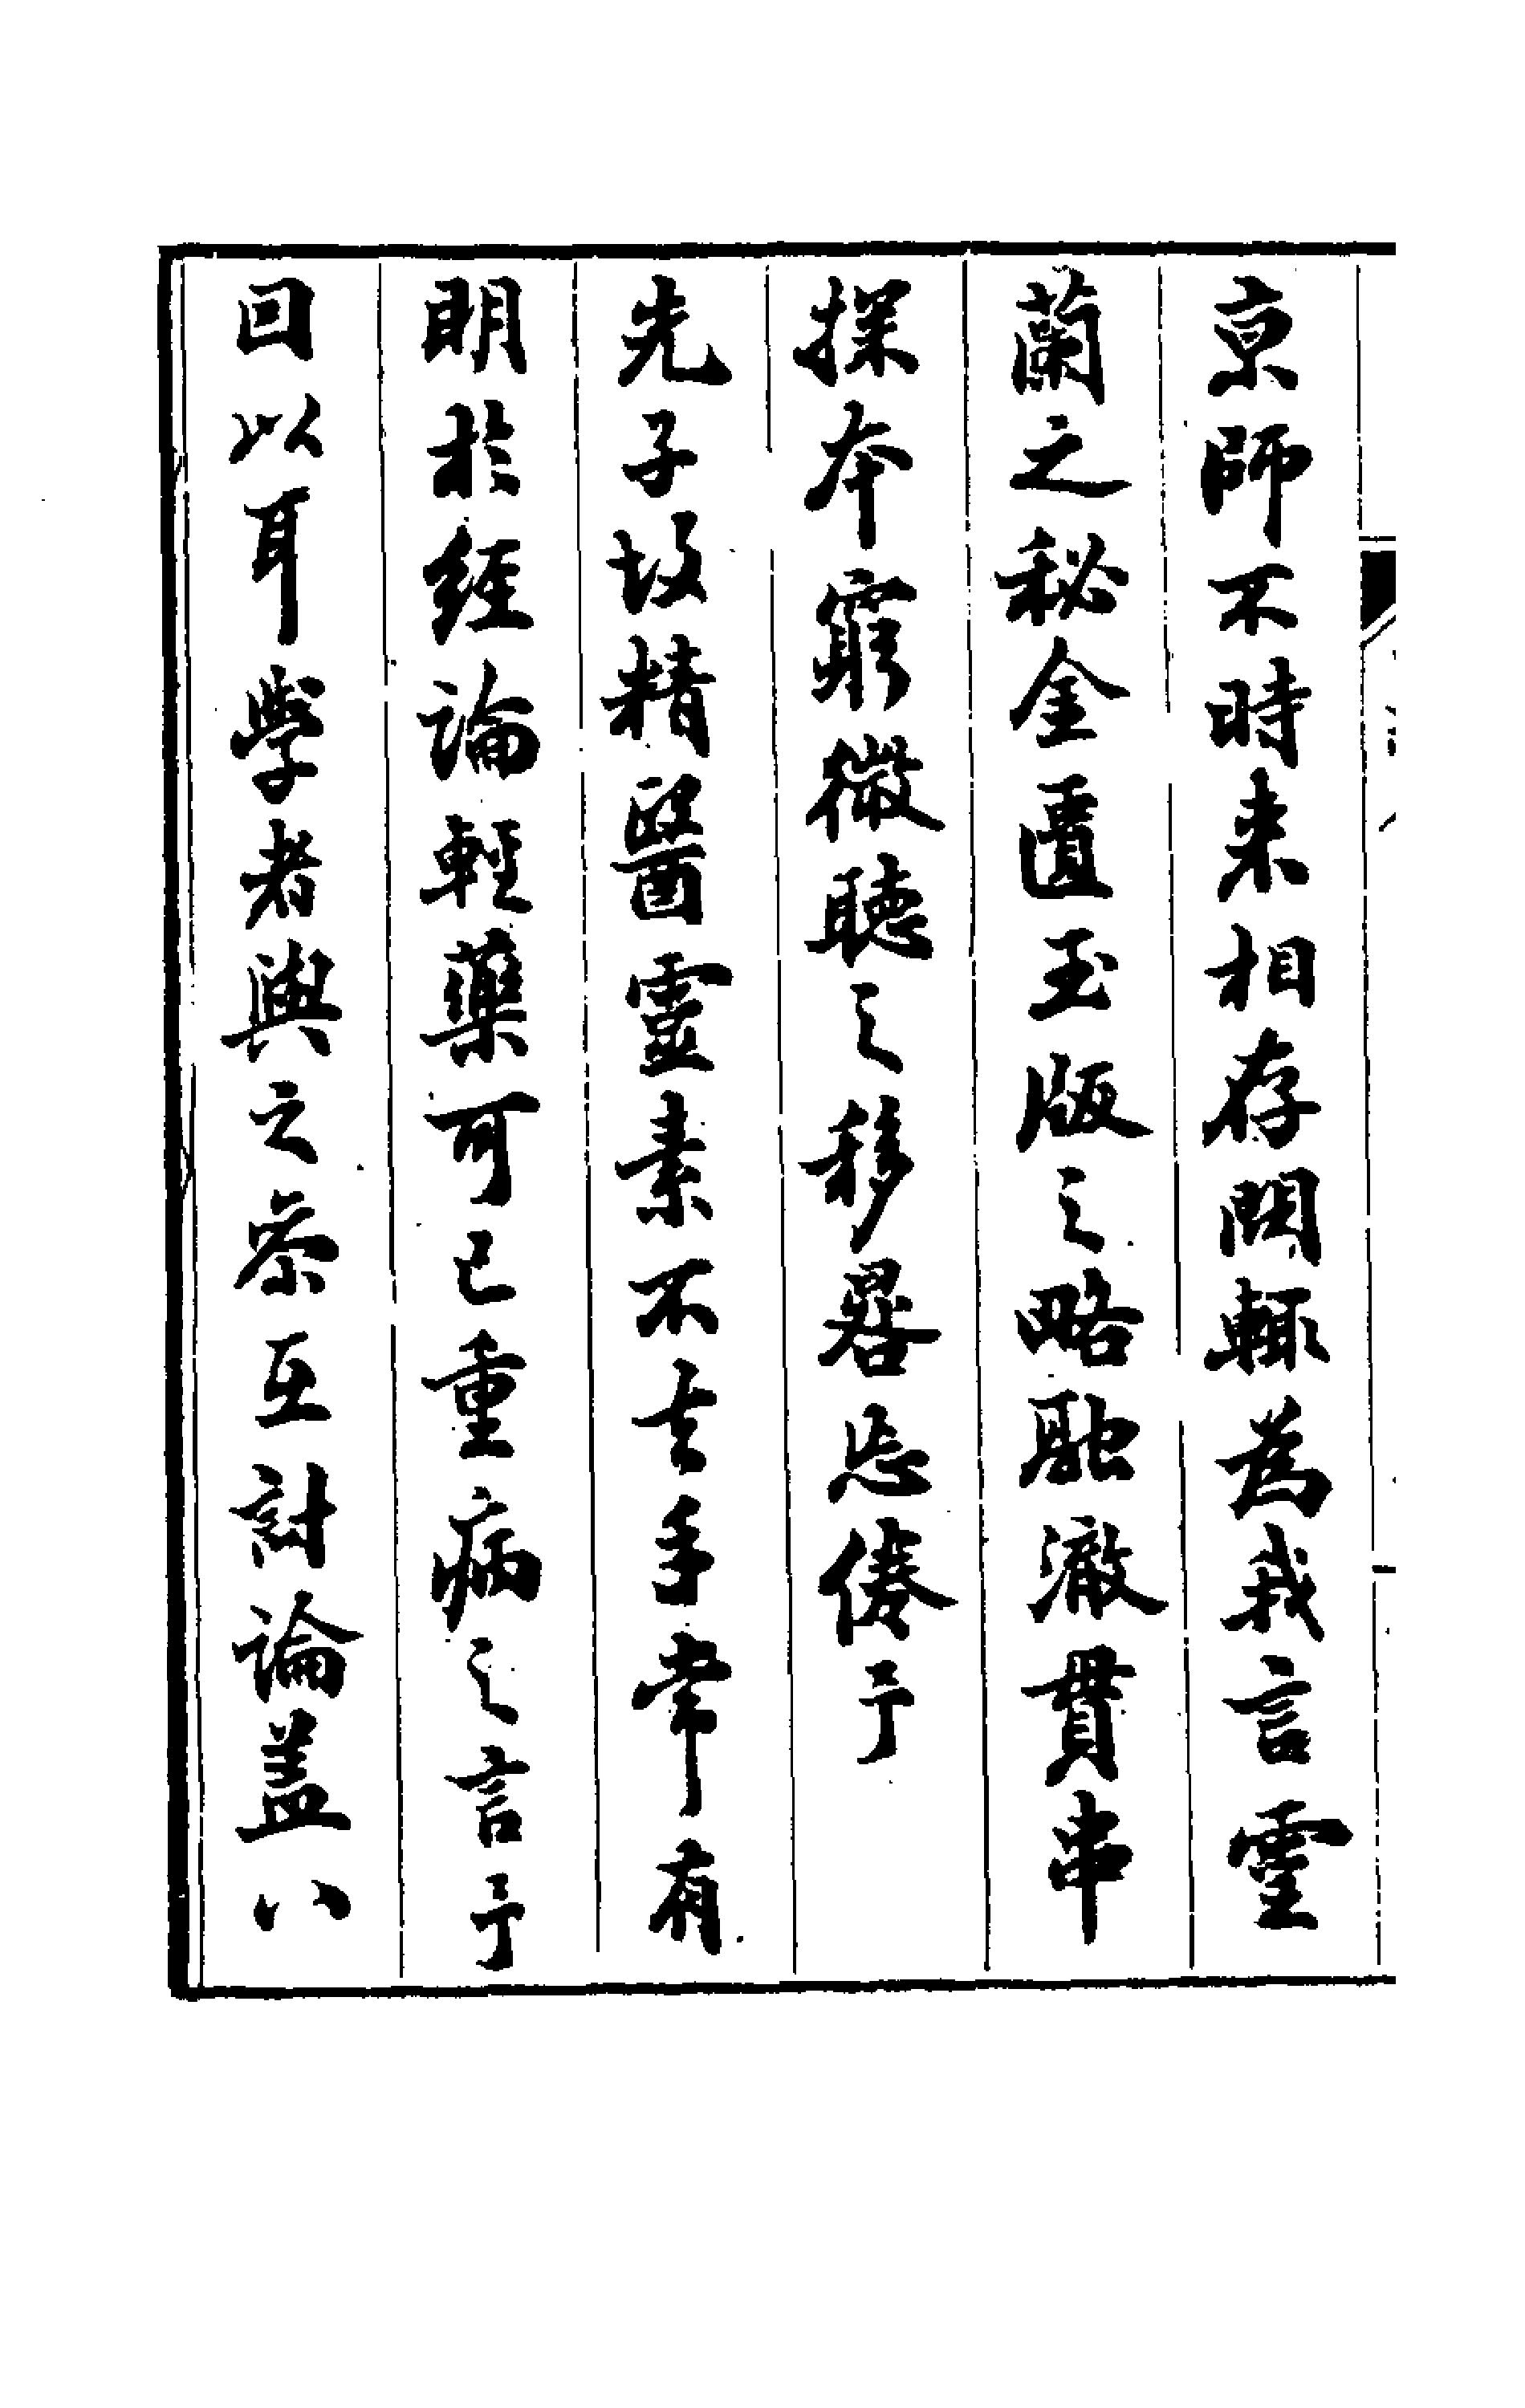 京師不時来相存問輙為我言靈
蘭之秘金匱玉版之略融澈貫串
探本窮微聽之移晷忘倦予
先子故精醫靈素不去手常有
明於經論輕藥可已重病之言予
回以耳學者與之叅互討論盖八